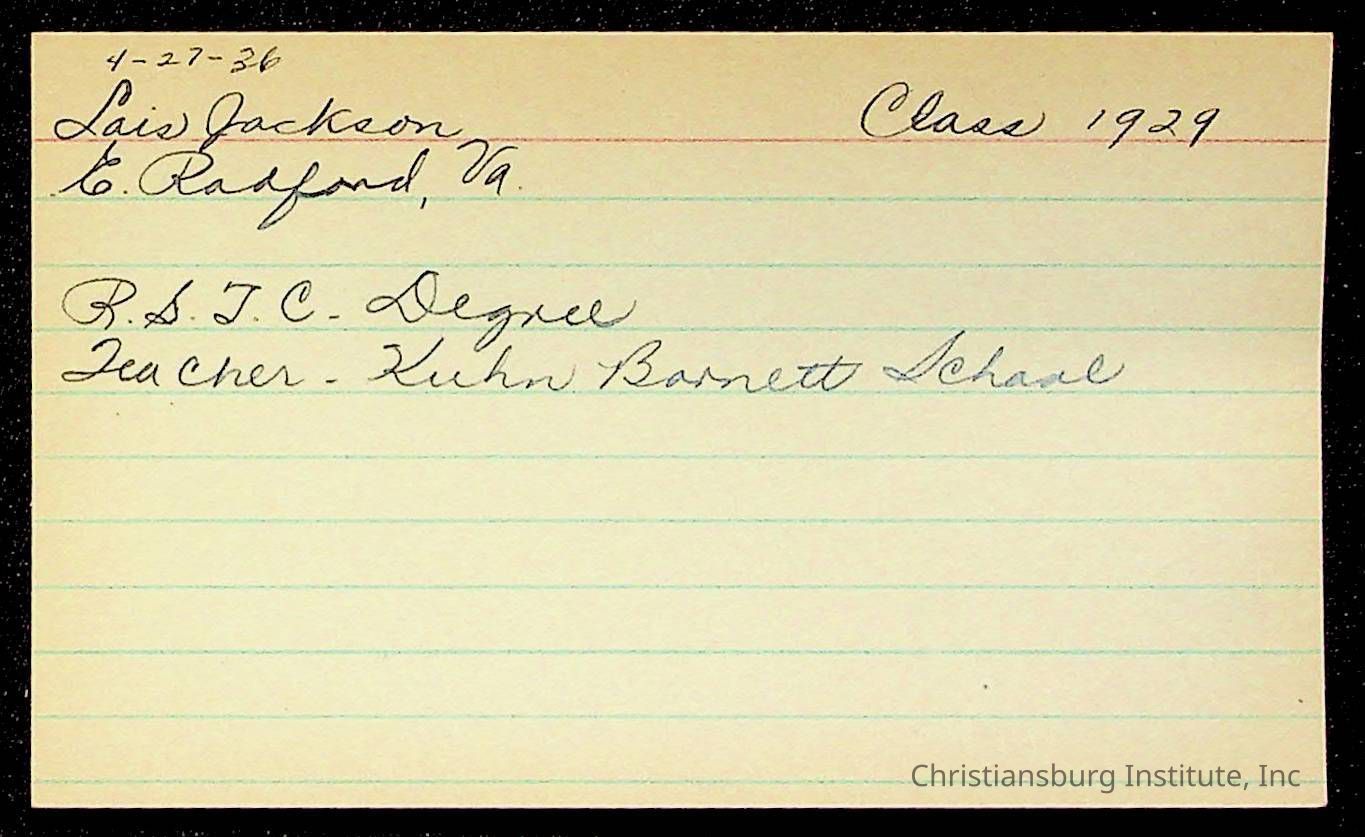 4-27-36
Lois Jackson Class 1929
E. Radford, Va.
R.S.T.C. - Degree
Teacher - Kuhn Barnett School
Christiansburg Institute, Inc